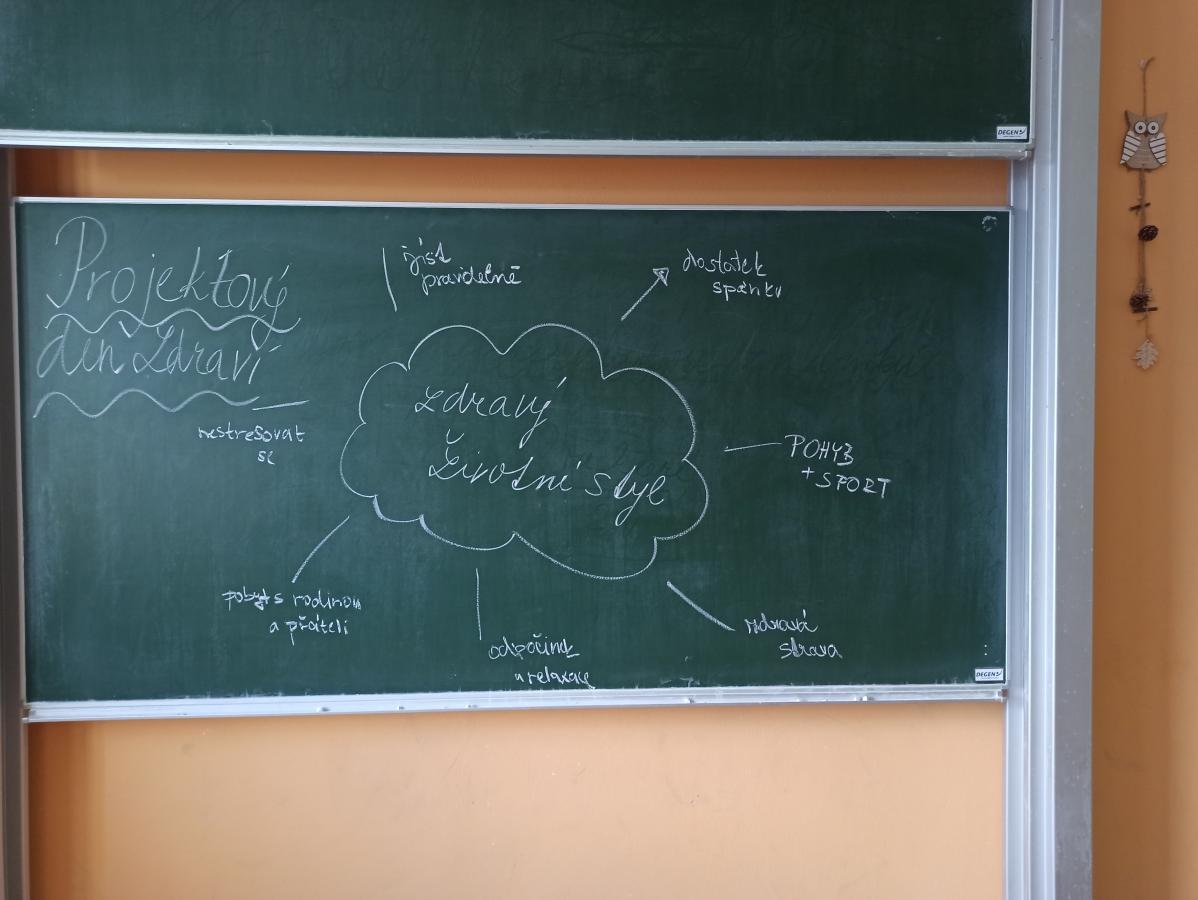 Projektový
den Zdraví
jíst
pravidelně
dostatek
spánku
zdravý
životní styl
nestresovat
se
POHYB
+ SPORT
pobyt s rodinou
a přáteli
odpočinek
a relaxace
zdravá
strava
DEGEN
DEGEN